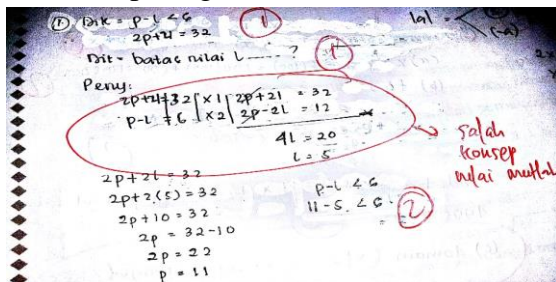 ① Dik = p-l < 6 ①
2p+2l = 32
|a| = < (-a)
Dit = batas nilai l ......? ①
Peny:
2p+2l = 32 | x1 | 2p+2l = 32
p-l = 6 | x2 | 2p-2l = 12
4l = 20
l = 5
salah
konsep
nilai mutlak
2p+2l = 32
2p+2.(5) = 32
2p+10 = 32
2p = 32-10
2p = 22
p = 11
p-l < 6
11-5 < 6
②